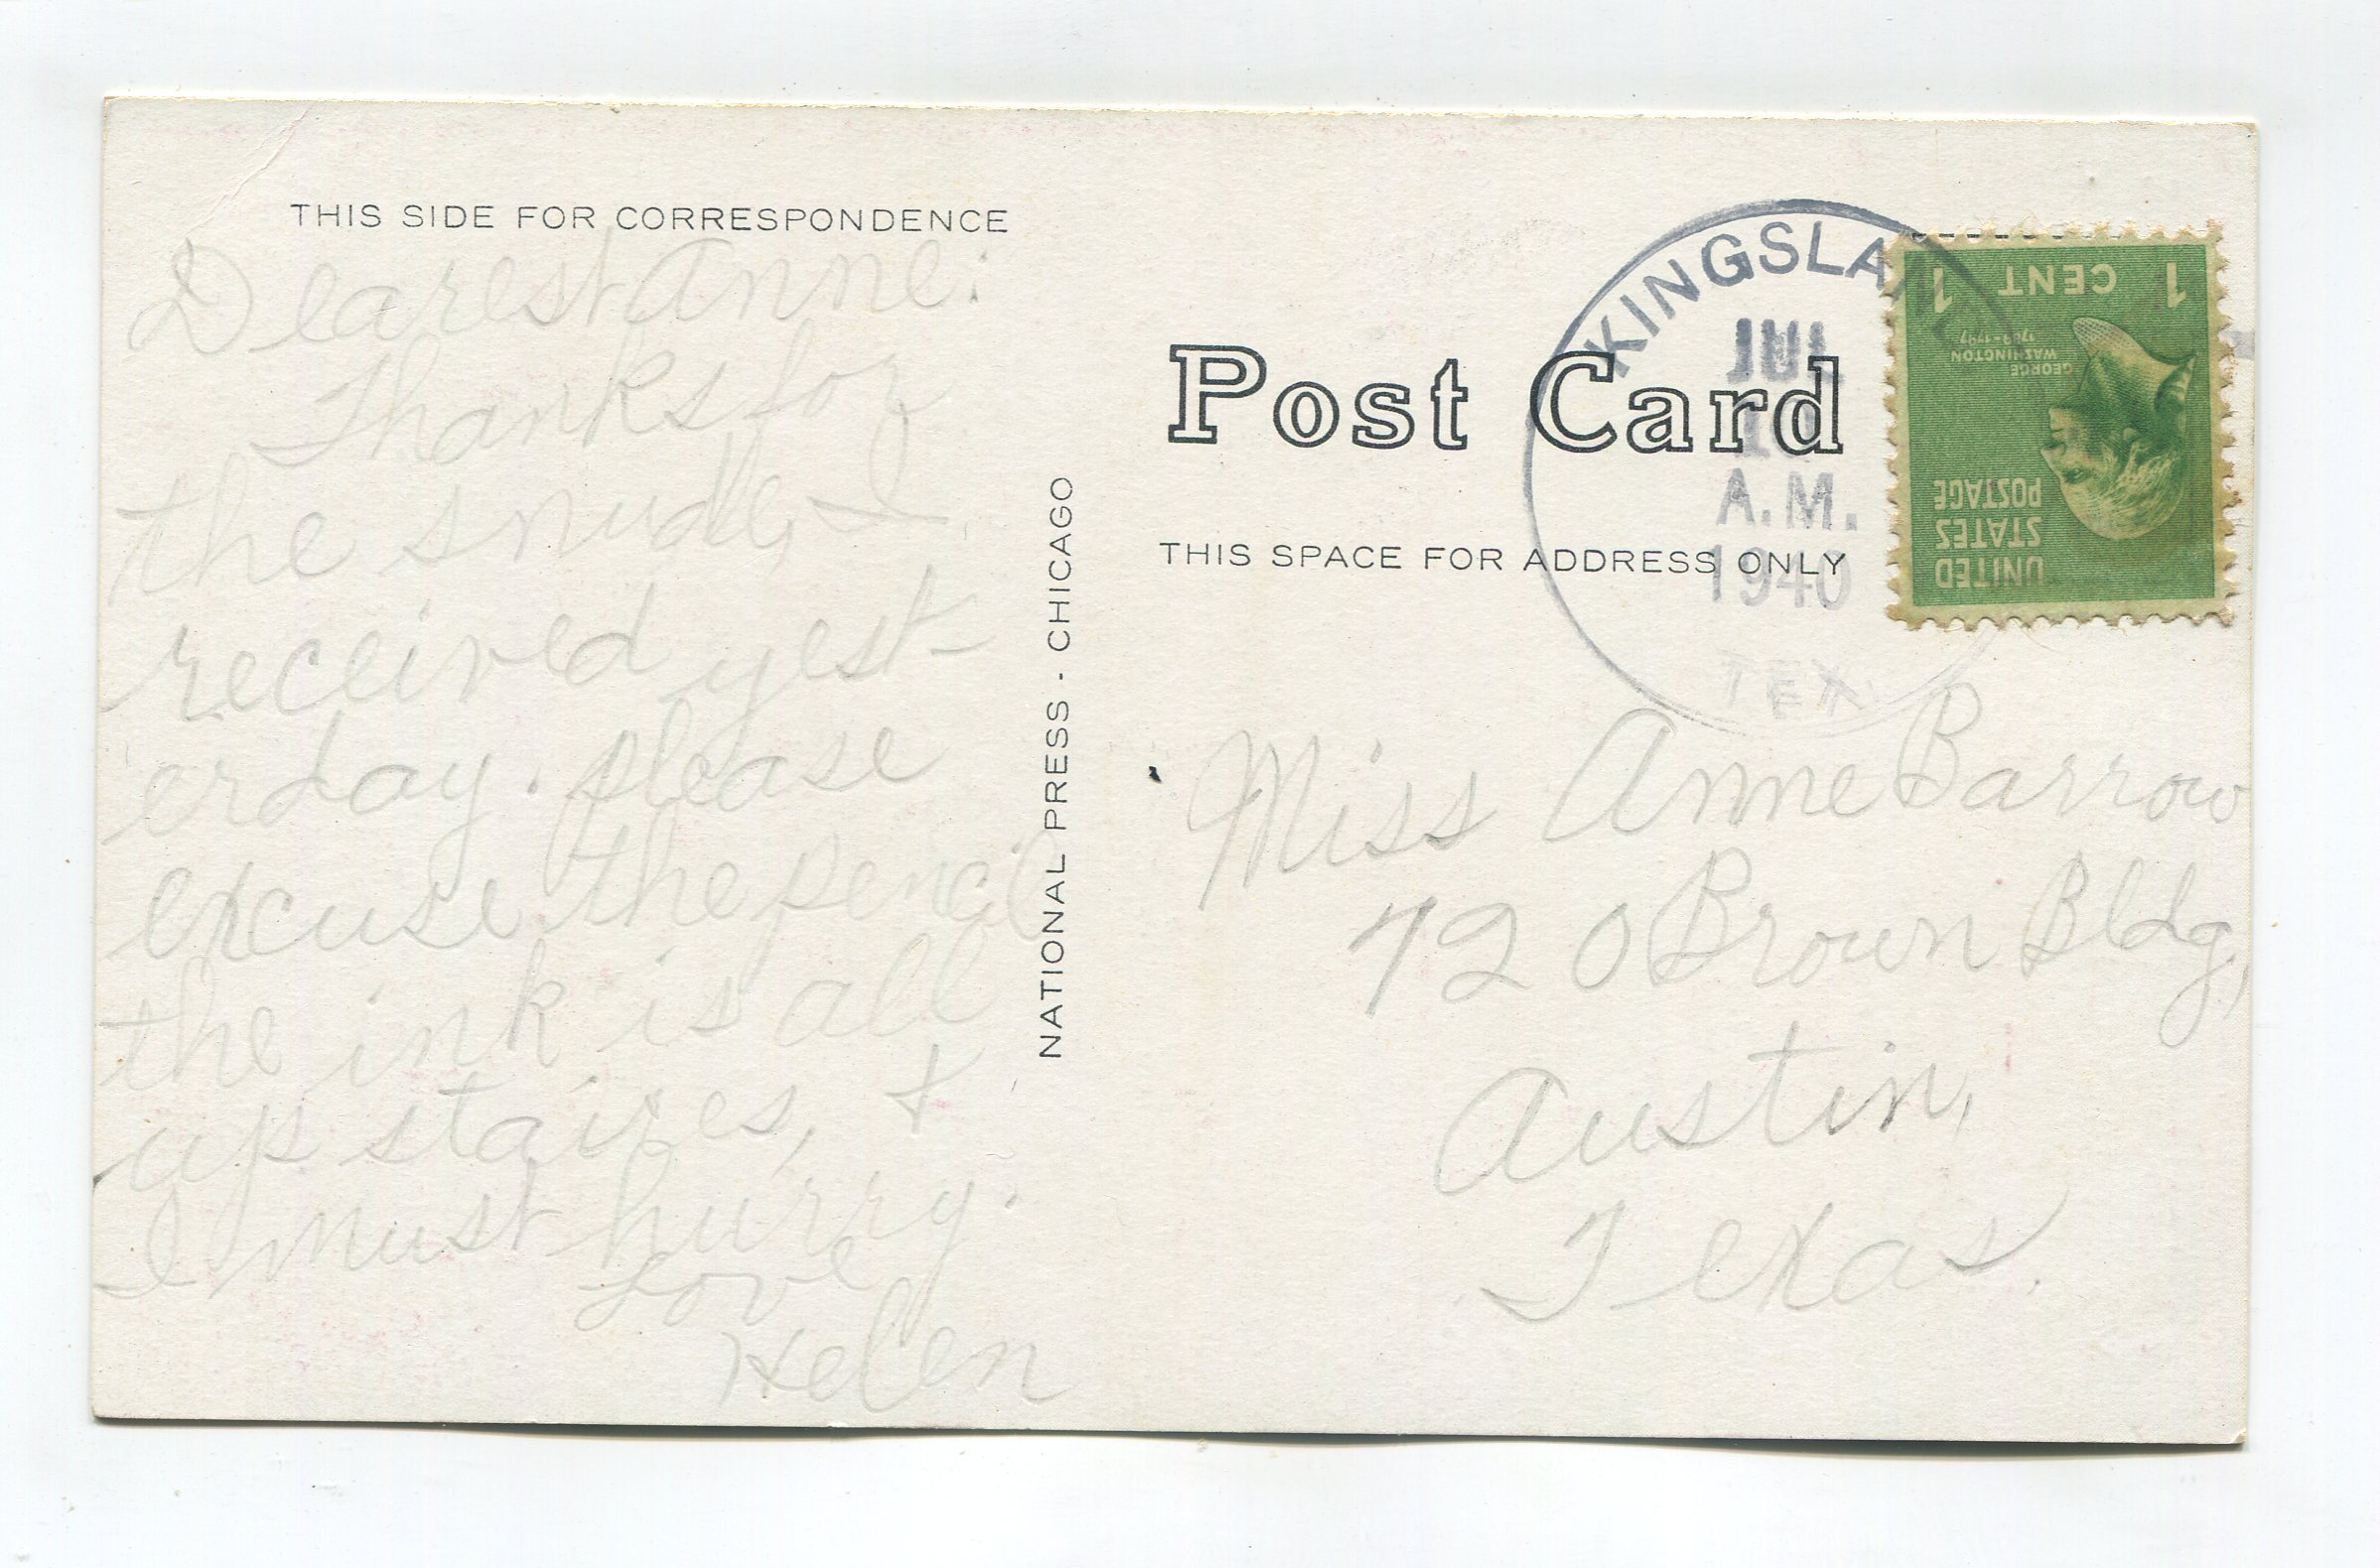 THIS SIDE FOR CORRESPONDENCE
Dearest Anne:
Thanks for
the snude, I
received yest-
erday. Please
excuse the pencil
the ink is all
up staires, &
I must hurry.
Love
Helen
NATIONAL PRESS - CHICAGO
Post Card
THIS SPACE FOR ADDRESS ONLY
KINGSLAND
JUL
A.M.
1940
TEX
1 CENT 1
GEORGE
WASHINGTON
1789-1797
UNITED
STATES
POSTAGE
Miss Anne Barrow
720 Brown Bldg,
Austin,
Texas.